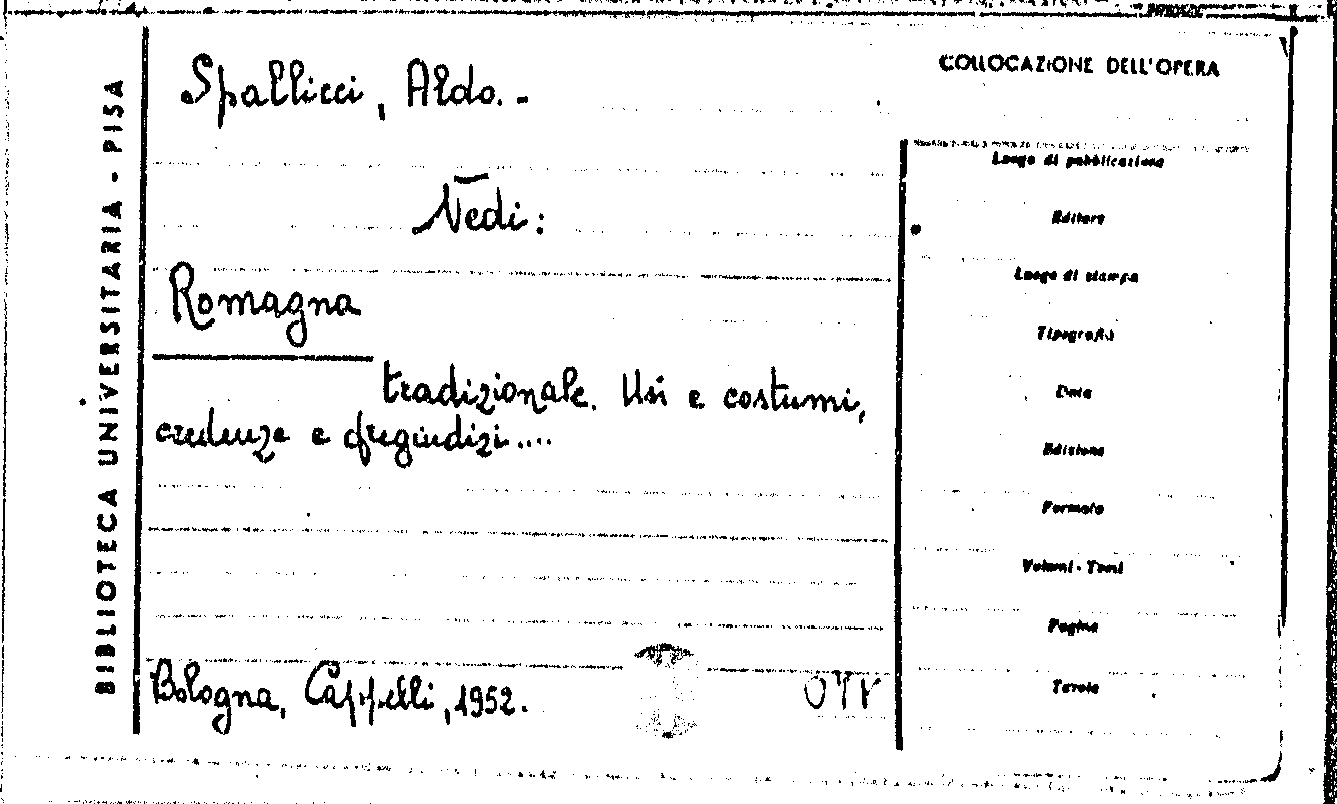 BIBLIOTECA UNIVERSITARIA - PISA
Spallicci, Aldo. -
Vedi:
Romagna
tradizionale. Usi e costumi,
credenze e pregiudizi....
Bologna, Cappelli, 1952.
COLLOCAZIONE DELL'OPERA
Luogo di pubblicazione
Editore
Luogo di stampa
Tipografia
Data
Edizione
Formato
Volumi - Tomi
Pagine
Tavole